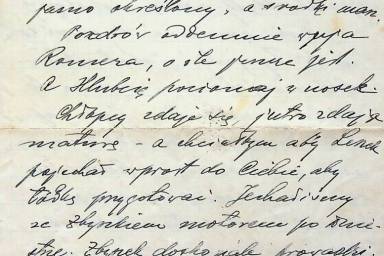 jasno określony, a środki man
Pozdrów odemnie wuja
Romera, o ile jeszcze jest.
a Hlubię pocałuj w nosek.
Chłopcy zdaje się, jutro zdają
maturę – a chciałbym aby Lenek
pojechał wprost do Ciebie, aby
łódkę przygotować. Jechaliśmy
ze Zbyszkiem motorem po Dnie-
strze. Zbyszek doskonale prowadzi.